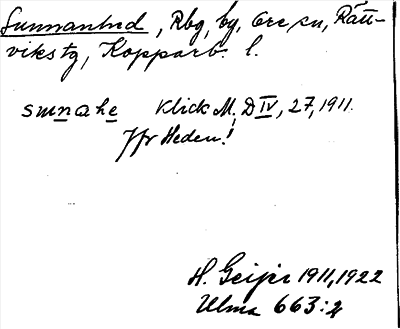 Sunnanhed, Rbg, by, Ore sn, Rätt-
viks tg, Kopparb. l.
sunnahe Klick M, D IV, 27, 1911.
Jfr Heden!
H. Geijer 1911, 1922
Ulma 663:4